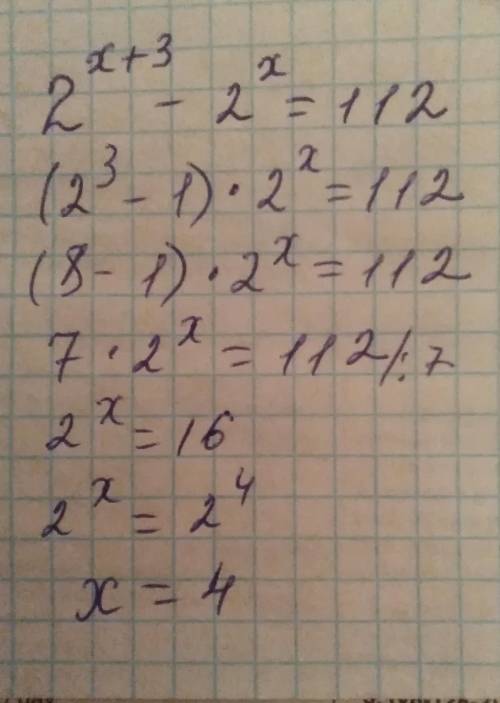 2^{x+3} - 2^x = 112
(2^3 - 1) · 2^x = 112
(8 - 1) · 2^x = 112
7 · 2^x = 112 /: 7
2^x = 16
2^x = 2^4
x = 4